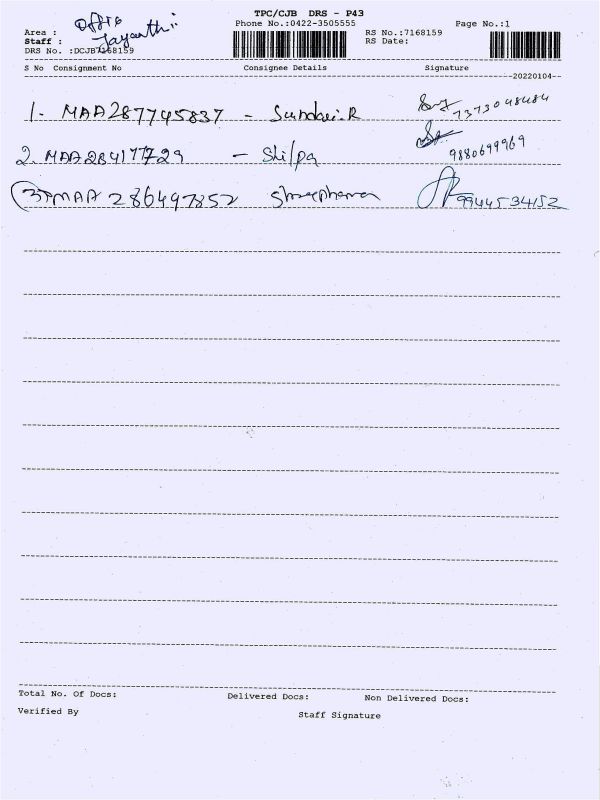 TPC/CJB DRS - P43
Phone No.:0422-3505555
Page No.:1
Area :
Staff : Jayanthi
RS No.:7168159
RS Date:
DRS No. :DCJB7168159
S No Consignment No Consignee Details Signature
--20220104--
1. MAA287745837 -
7373048484
2. MAA284177729 - Shilpa
9880699969
3. MAA 286497852
9944534152
Total No. Of Docs: Delivered Docs: Non Delivered Docs:
Verified By Staff Signature